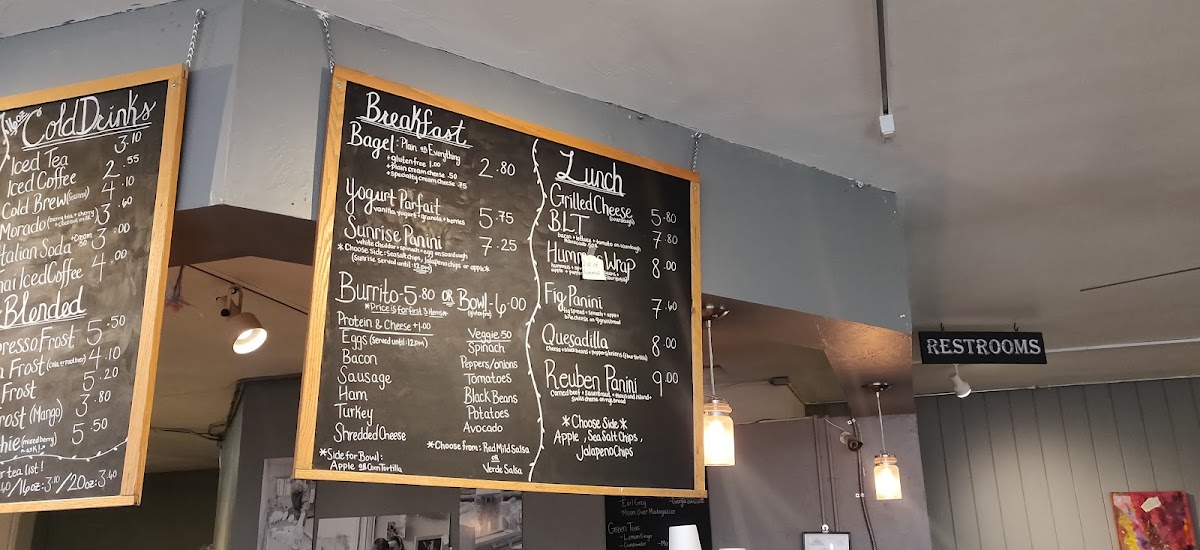 16oz
Cold Drinks
Iced Tea 3.10
Iced Coffee 2.55
Cold Brew 4.10
Morado (berry tea + cherry 3.60
Italian Soda +cream 3.00
Thai Iced Coffee 4.00
Blended
Espresso Frost 5.50
Frost 4.10
Frost 5.20
Frost (Mango) 3.80
(mixed berry) 5.50
tea list!
/16oz: 3.10/20oz: 3.40
Breakfast
Bagel: Plain or Everything 2.80
+gluten free 1.00
+plain cream cheese .50
+specialty cream cheese .75
Yogurt Parfait 5.75
vanilla yogurt + granola + berries
Sunrise Panini 7.25
white cheddar + spinach + egg on sourdough
*Choose Side: Sea Salt chips, Jalapeno chips or apple*
(Sunrise Served until: 12pm)
Burrito-5.80 OR Bowl-6.00
*Price is for first 3 items*
(gluten free)
Protein & Cheese +1.00
Eggs (Served until: 12pm)
Bacon
Sausage
Ham
Turkey
Shredded Cheese
Veggie .50
Spinach
Peppers/onions
Tomatoes
Black Beans
Potatoes
Avocado
*Side for Bowl:
Apple or Corn Tortilla
*Choose from: Red Mild Salsa
or
Verde Salsa
Lunch
Grilled Cheese 5.80
(sourdough)
B.L.T 7.80
bacon + lettuce + tomato on sourdough
Hummus Wrap 8.00
Fig Panini 7.60
fig spread + spinach + apple +
brie cheese on 9 grain bread
Quesadilla 8.00
Cheese + black beans + peppers/onions (flour tortilla)
Reuben Panini 9.00
Corned beef + sauerkraut + thousand island +
Swiss cheese on rye bread
*Choose Side*
Apple, Sea Salt Chips,
Jalapeno Chips
RESTROOMS
-Earl Grey
-Moon Over Madagascar
Green Teas
-Lemon Ginger